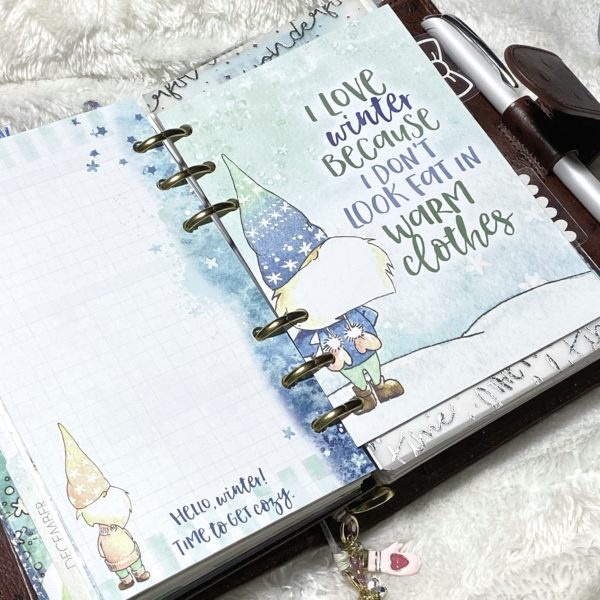 I LOVE
winter
BECAUSE
I DON'T
LOOK FAT IN
WARM
clothes
HELLO, WINTER!
TIME TO GET COZY.
DECEMBER